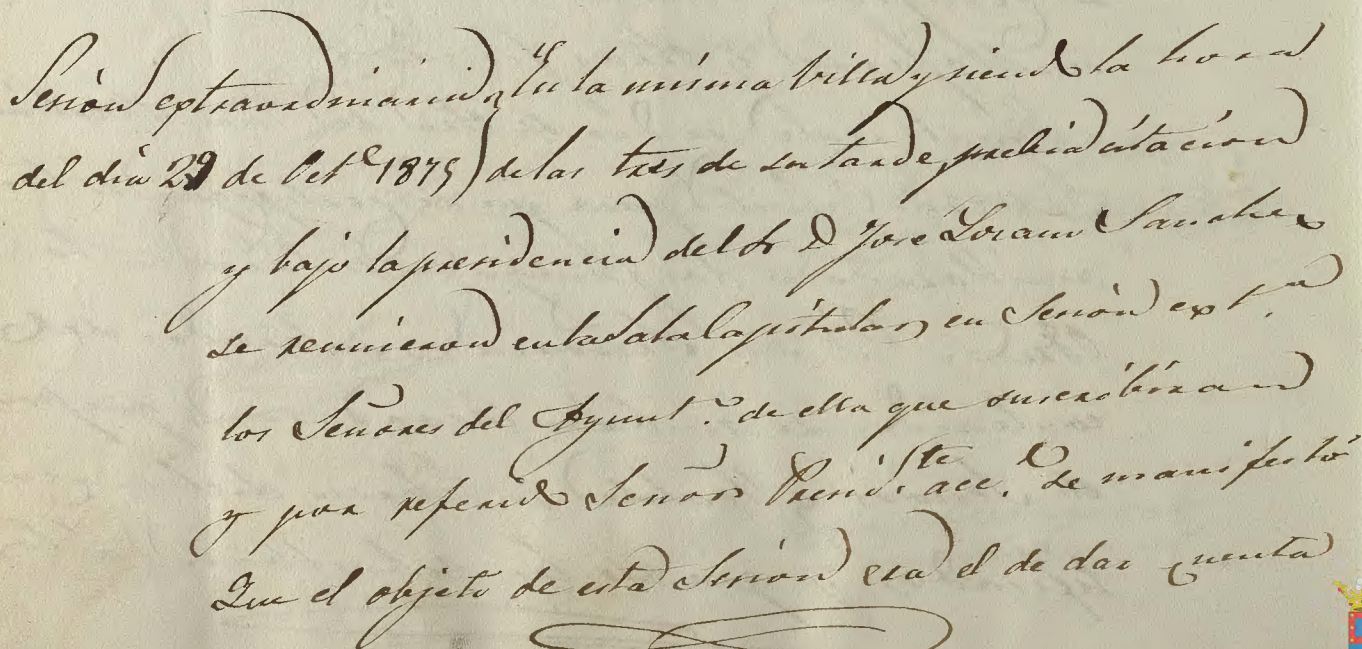 Sesión extraordinaria } En la misma villa y siendo la hora
del dia 29 de Oct.e 1875 } de las tres de su tarde, prebia citacion
y bajo la presidencia del Sr D José Lozano Sanchez
se reunieron en la Sala Capitular, en Sesión ext.a
los Señores del Ayunt.o de ella que suscribiran
y por referido Señor Presid.te acc.l se manifestó
Que el objeto de esta Sesión era el de dar cuenta